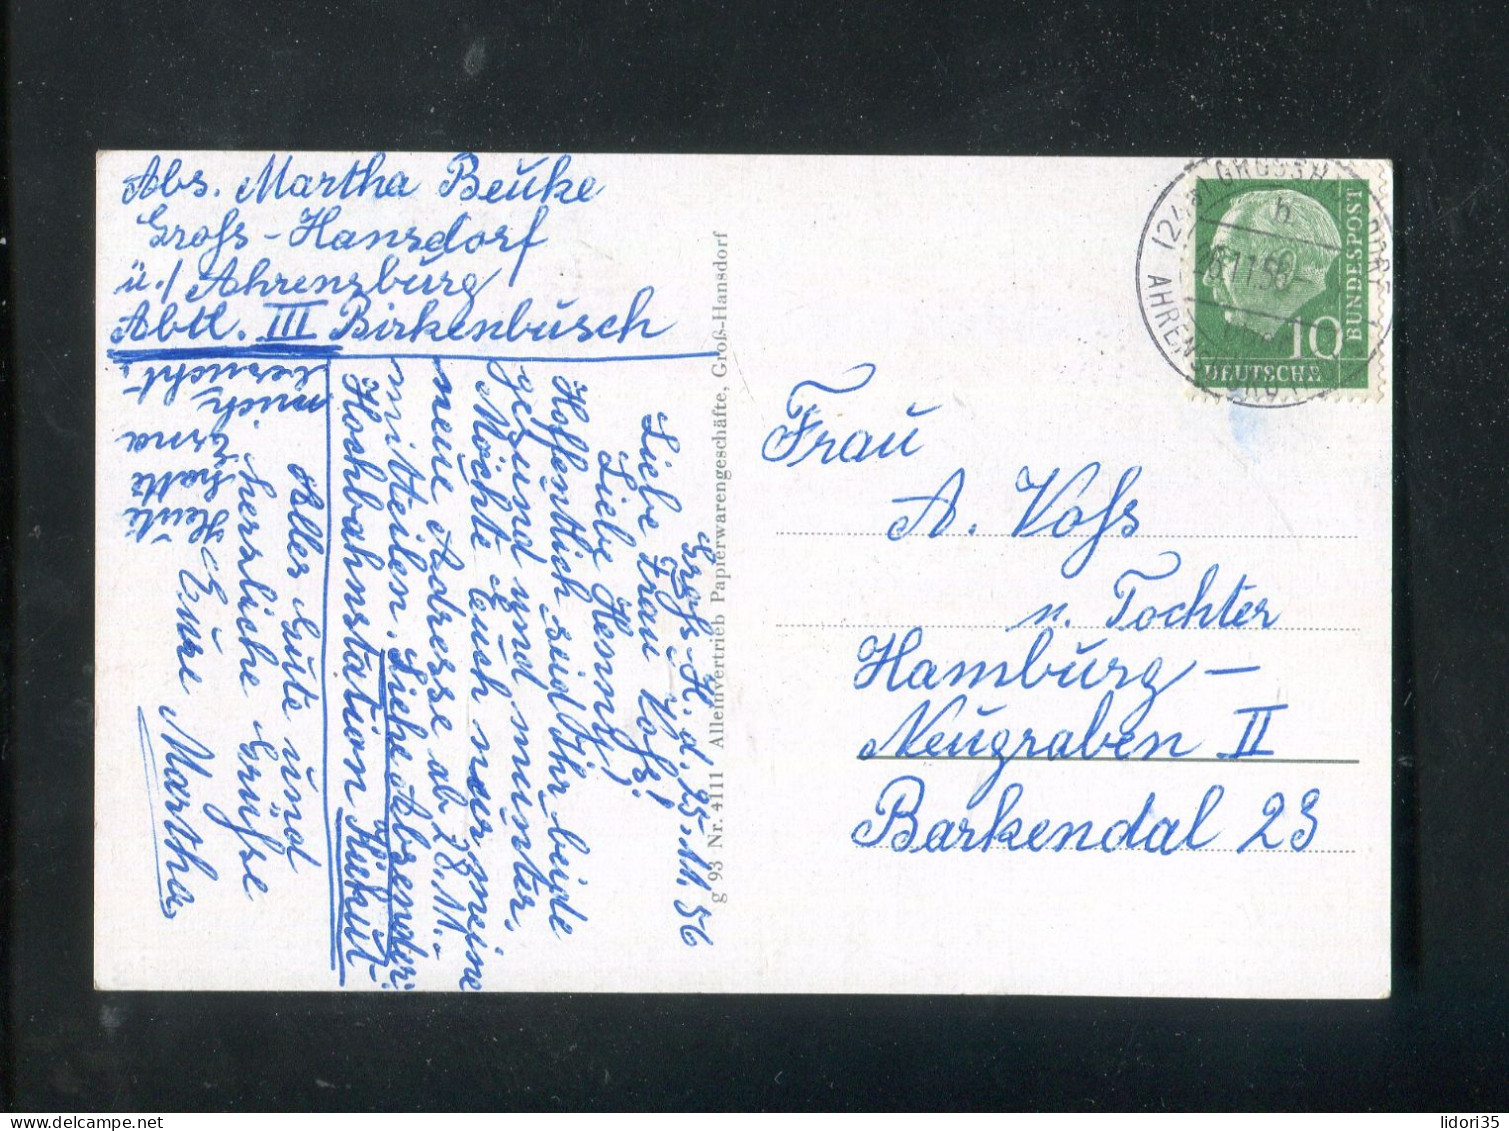 Abs. Martha Beuke
Groß-Hansdorf
ü./ Ahrensburg
Abtl. III Birkenbusch
Groß-H. d. 25.11.56
Liebe Frau Voß!
Liebe Henny!
Hoffentlich seid Ihr beide
gesund und munter.
Möchte Euch nur meine
neue Adresse ab 28.11.
mitteilen. Siehe Absender:
Hochbahnstation Kiekut
Alles Gute und
herzliche Grüße
Eure Martha
Heute
hatte
Erna
mich
besucht.
g 93 Nr. 4111 Alleinvertrieb Papierwarengeschäfte, Groß-Hansdorf
Frau
A. Voß
u. Tochter
Hamburg –
Neugraben II
Barkendal 23
(24a) GROSSH DORF
AHRENSBURG
11.56
10
DEUTSCHE
BUNDESPOST
lidori35